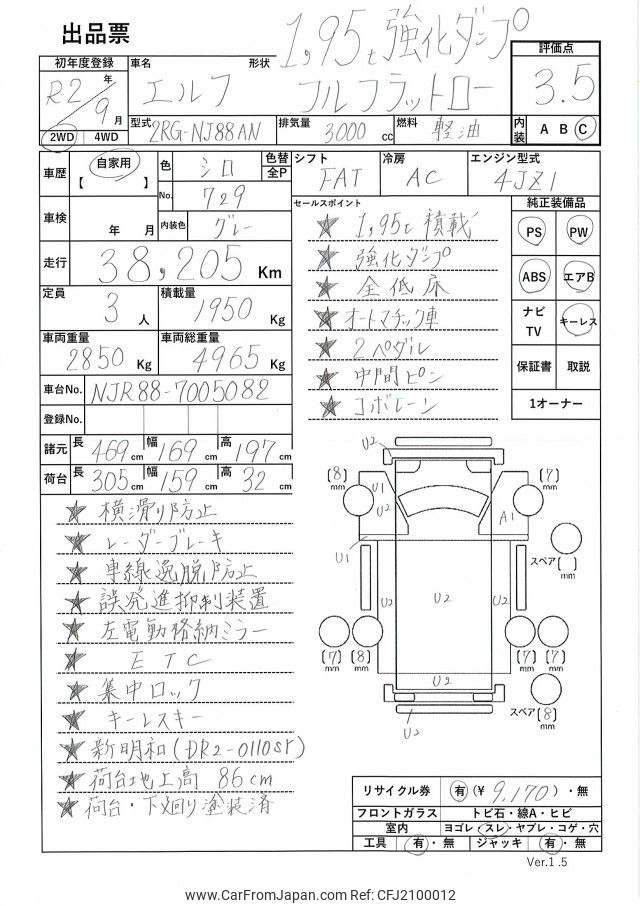 出品票
1,95t 強化ダンプ
フルフラットロー
初年度登録 R2年/9月
2WD 4WD
車名 エルフ 形状
型式 2RG-NJ88AN 排気量 3000cc 燃料 軽油
評価点 3.5
内装 A B C
車歴 自家用 【 】
色 シロ 色替 全P
No. 729
内装色 グレー
シフト FAT 冷房 AC エンジン型式 4JZ1
車検 年 月
走行 38,205 Km
定員 3人 積載量 1950 Kg
車両重量 2850 Kg 車両総重量 4965 Kg
車台No. NJR88-7005082
登録No.
諸元 長 469cm 幅 169cm 高 197cm
荷台 長 305cm 幅 159cm 高 32cm
セールスポイント
★ 1,95t積載
★ 強化ダンプ
★ 全低床
★ オートマチック車
★ 2ペダル
★ 中間ピン
★ コボレーン
純正装備品
PS PW
ABS エアB
ナビTV キーレス
保証書 取説
1オーナー
★ 横滑り防止
★ レーダーブレーキ
★ 車線逸脱防止
★ 誤発進抑制装置
★ 左電動格納ミラー
★ ETC
★ 集中ロック
★ キーレスキー
★ 新明和(DR2-0110SY)
★ 荷台地上高 86cm
★ 荷台・下廻り塗装済
U2
(8)mm (7)mm
U1 U2 A1
U1
スペア( )mm
U2 U2 U2
(7)mm (8)mm (7)mm (7)mm
U2
スペア(8)mm
U2
リサイクル券 有(¥9,170)・無
フロントガラス トビ石・線A・ヒビ
室内 ヨゴレ・スレ・ヤブレ・コゲ・穴
工具 有・無 ジャッキ 有・無
Ver.1.5
www.CarFromJapan.com Ref: CFJ2100012